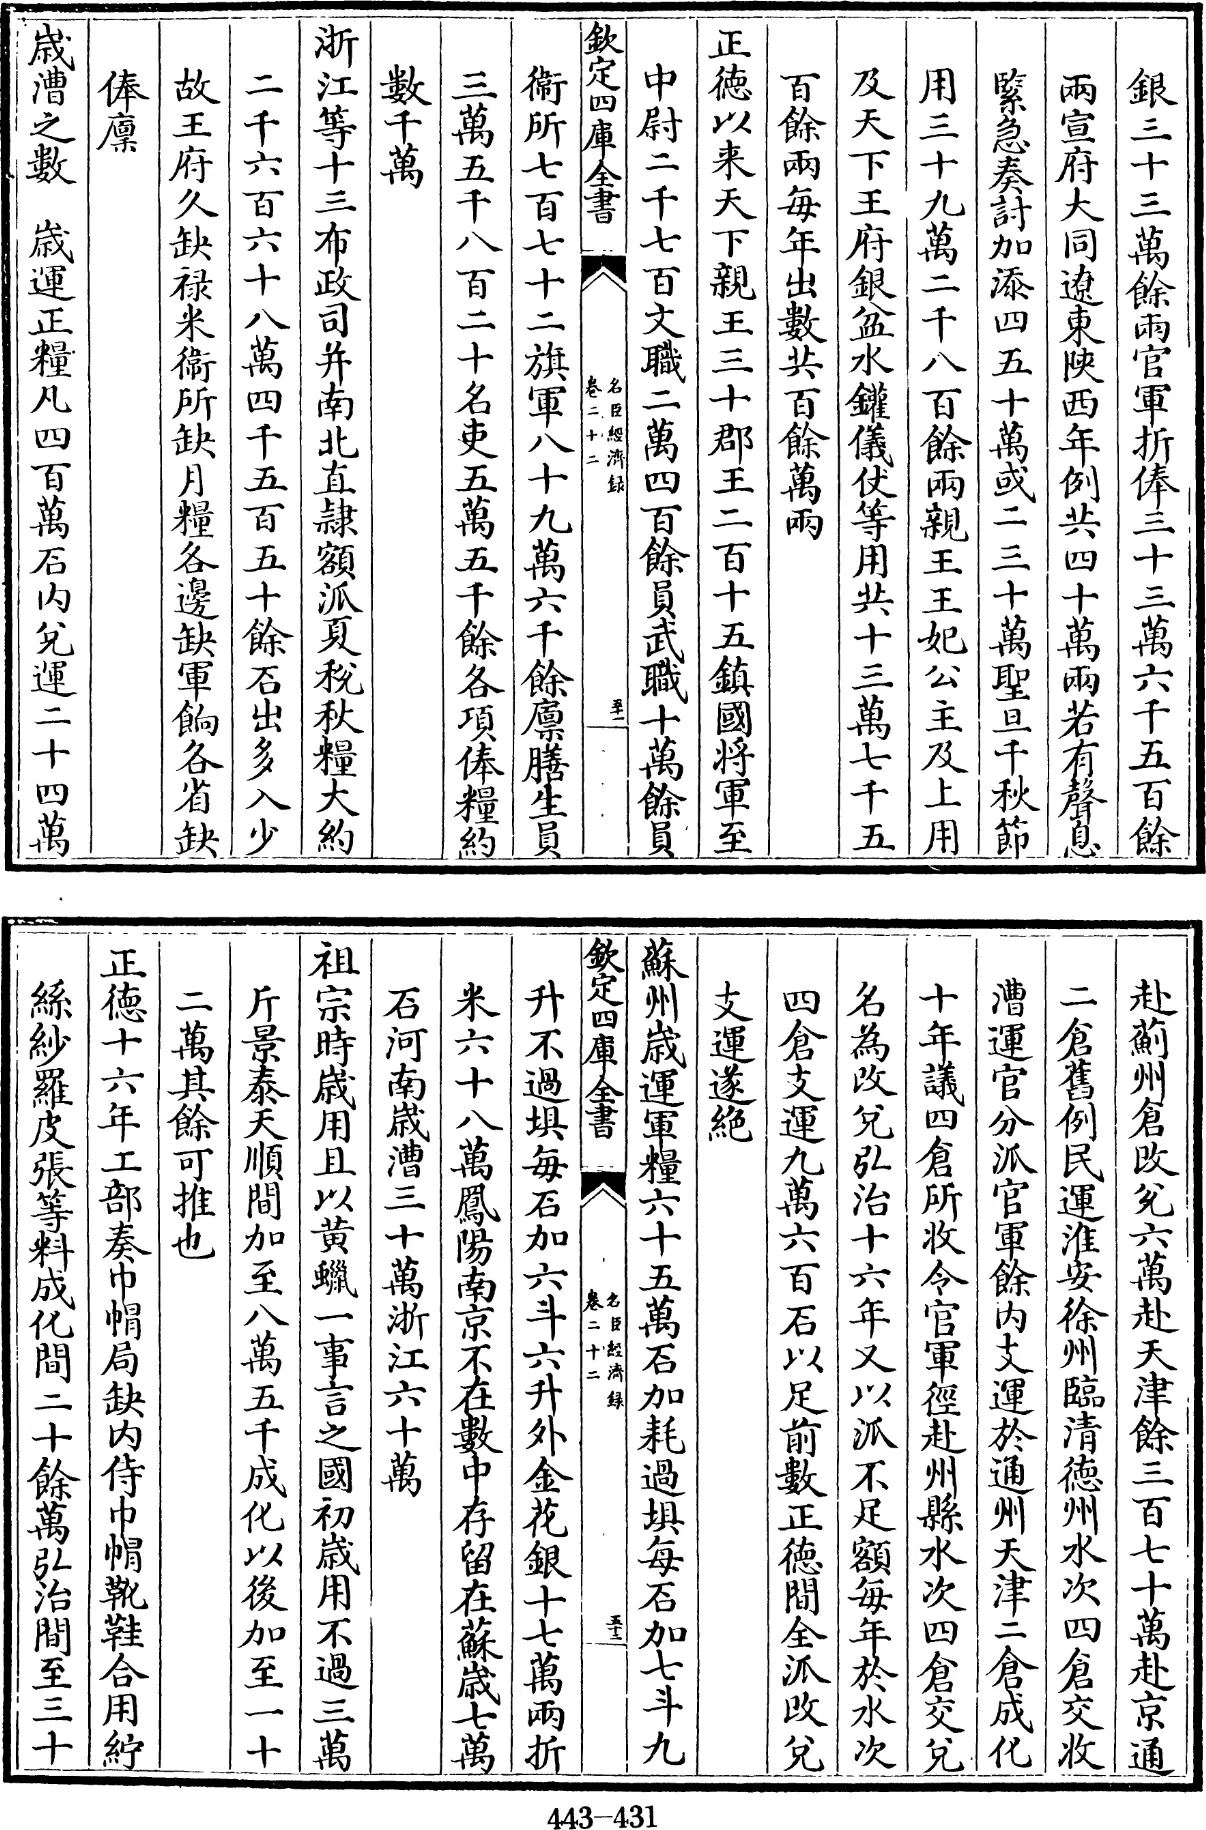 銀三十三萬餘兩官軍折俸三十三萬六千五百餘
兩宣府大同遼東陜西年例共四十萬兩若有聲息
緊急奏討加添四五十萬或二三十萬聖旦千秋節
用三十九萬二千八百餘兩親王王妃公主及上用
及天下王府銀盆水鑵儀仗等用共十三萬七千五
百餘兩每年出數共百餘萬兩
正德以来天下親王三十郡王二百十五鎮國將軍至
中尉二千七百文職二萬四百餘員武職十萬餘員
欽定四庫全書
名臣經濟録
卷二十二
五十一
衞所七百七十二旗軍八十九萬六千餘廩膳生員
三萬五千八百二十名吏五萬五千餘各項俸糧約
數千萬
浙江等十三布政司并南北直隷額派夏稅秋糧大約
二千六百六十八萬四千五百五十餘石出多入少
故王府久缺禄米衞所缺月糧各邊缺軍餉各省缺
俸廩
歳漕之數　歳運正糧凡四百萬石内兌運二十四萬
赴薊州倉改兌六萬赴天津餘三百七十萬赴京通
二倉舊例民運淮安徐州臨清德州水次四倉交收
漕運官分派官軍餘内支運於通州天津二倉成化
十年議四倉所收令官軍徑赴州縣水次四倉交兌
名為改兌弘治十六年又以派不足額每年於水次
四倉支運九萬六百石以足前數正德間全派改兌
支運遂絶
蘇州歳運軍糧六十五萬石加耗過埧每石加七斗九
欽定四庫全書
名臣經濟録
卷二十二
五十二
升不過埧每石加六斗六升外金花銀十七萬兩折
米六十八萬鳳陽南京不在數中存留在蘇歳七萬
石河南歳漕三十萬浙江六十萬
祖宗時歳用且以黄蠟一事言之國初歳用不過三萬
斤景泰天順間加至八萬五千成化以後加至一十
二萬其餘可推也
正德十六年工部奏巾帽局缺内侍巾帽靴鞋合用紵
絲紗羅皮張等料成化間二十餘萬弘治間至三十
443-431